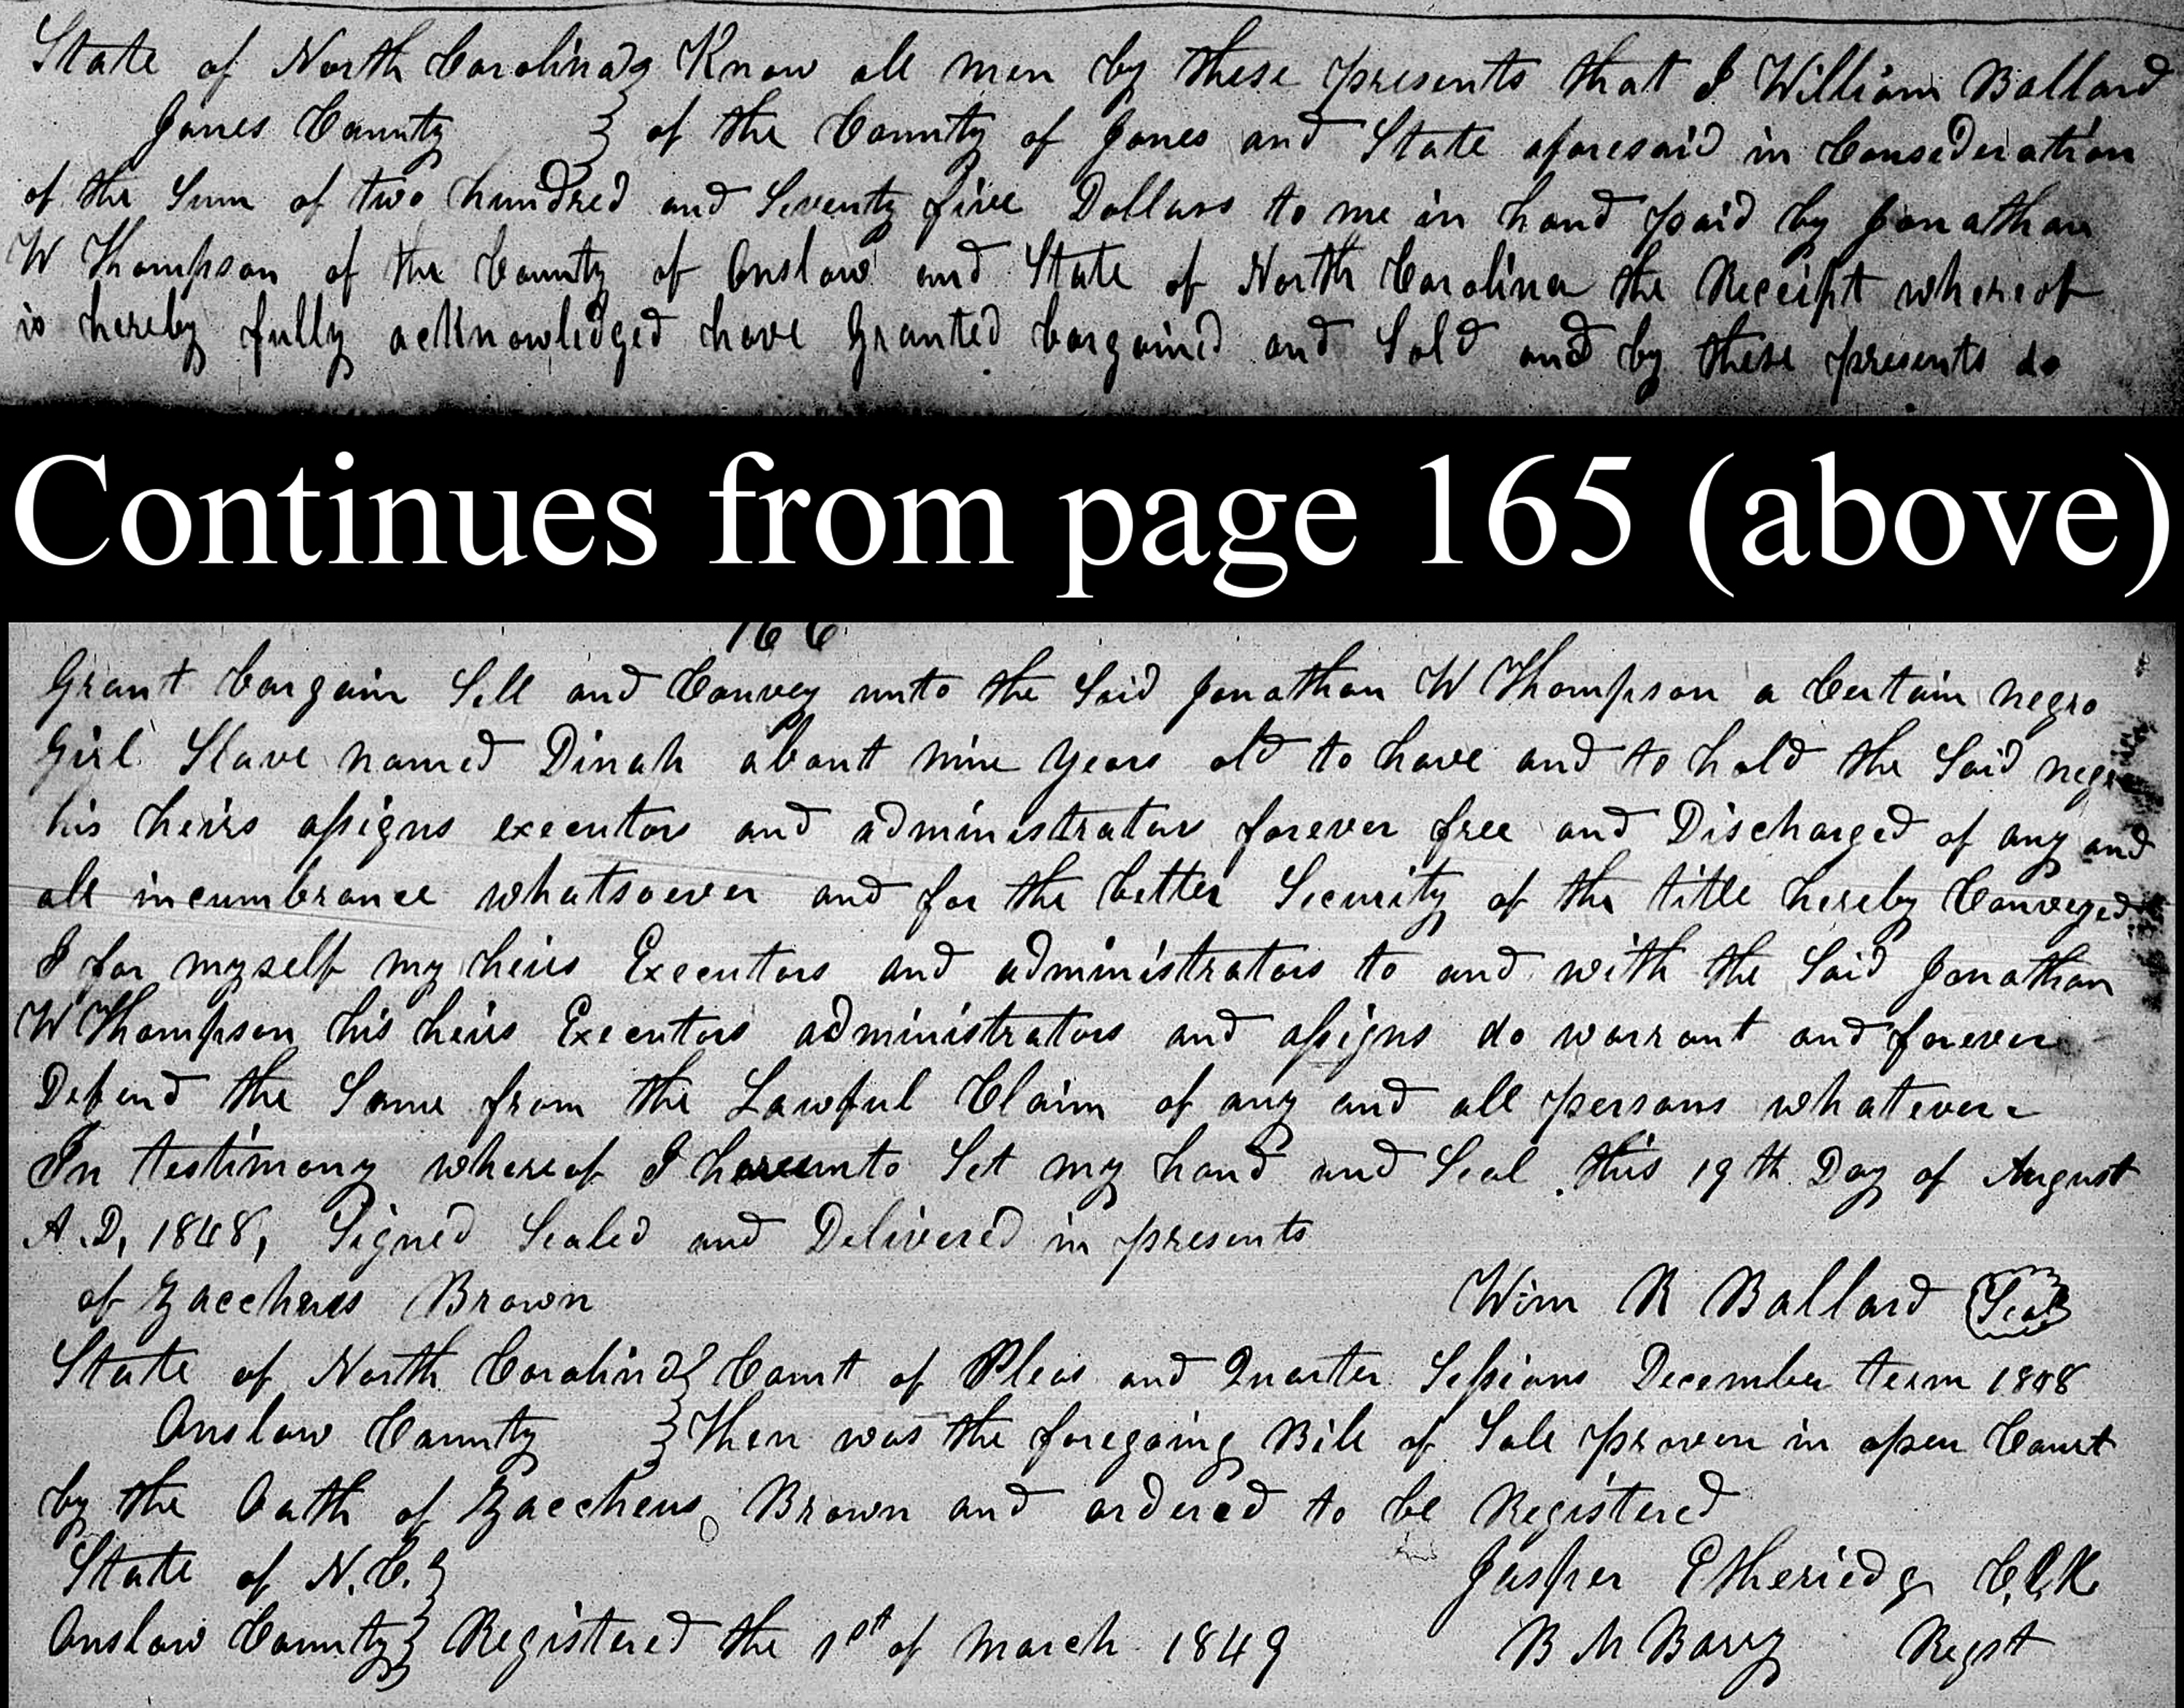 State of North Carolina } Know all men by these presents that I William Ballard
Jones County } of the County of Jones and State aforesaid in Consederation
of the Sum of two hundred and Seventy five Dollars to me in hand paid by Jonathan
W Thompson of the County of Onslow and State of North Carolina the Receipt whereof
is hereby fully acknowledged have Granted bargained and Sold and by these presents do
Continues from page 165 (above)
166
Grant bargain Sell and Convey unto the Said Jonathan W Thompson a Certain negro
Girl Slave named Dinah about nine years old to have and to hold the Said negro
his heirs assigns executors and administrators forever free and Discharged of any and
all incumbrance whatsoever and for the better Security of the title hereby Conveyed
I for myself my heirs Executors and administrators to and with the Said Jonathan
W Thompson his heirs Executors administrators and assigns do warrant and forever
Defend the Same from the Lawful Claim of any and all persons whatever
In testimony whereof I hereunto Set my hand and Seal this 19th Day of August
A.D, 1848, Signed Sealed and Delivered in presents
of Zaccheus Brown Wim R Ballard Seal
State of North Carolina } Court of Pleas and Quarter Sessions December term 1848
Onslow County } Then was the foregoing Bill of Sale proven in open Court
by the Oath of Zaccheus Brown and ordered to be Registered
State of N.C. } Jasper Etheriedge C,l,K
Onslow County } Registered the 1st of March 1849 B M Barry Regst